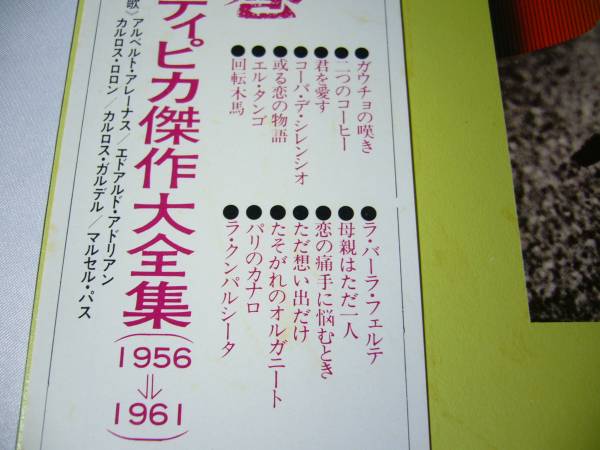 巻
●ガウチョの嘆き
●二つのコーヒー
●君を愛す
●コーパ・デ・シレンシオ
●或る恋の物語
●エル・タンゴ
●回転木馬
●ラ・バーラ・フェルテ
●母親はただ一人
●恋の痛手に悩むとき
●ただ想い出だけ
●たそがれのオルガニート
●パリのカナロ
●ラ・クンパルシータ
ティピカ傑作大全集(1956⇒1961)
歌〉アルベルト・アレーナス/エドアルド・アドリアン
カルロス・ロロン/カルロス・ガルデル/マルセル・パス